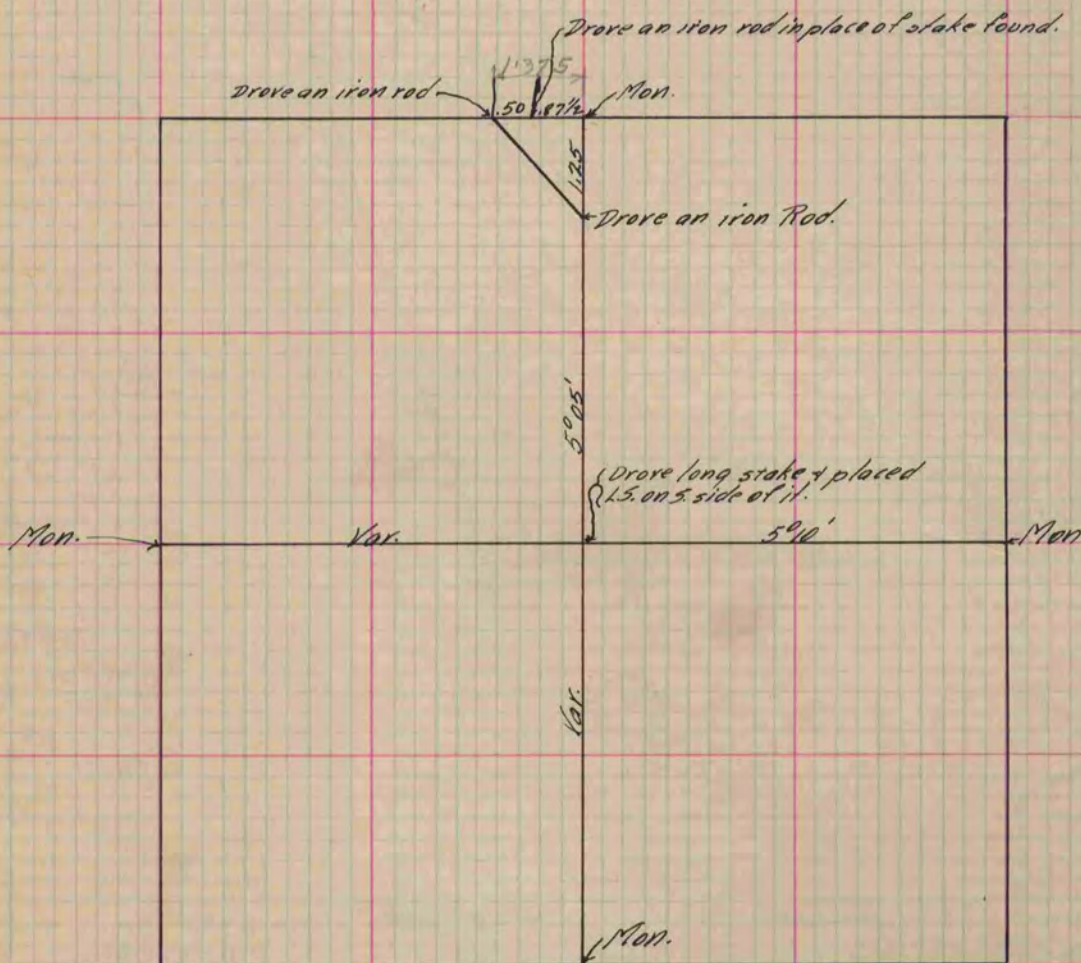 Drove an iron rod in place of stake found.
1.375
Drove an iron rod
.50
.87½
Mon.
1.25
Drove an iron Rod.
5°05'
Drove long stake & placed
L.S. on S. side of it.
Mon.
Var.
5°10'
Mon
Var.
Mon.